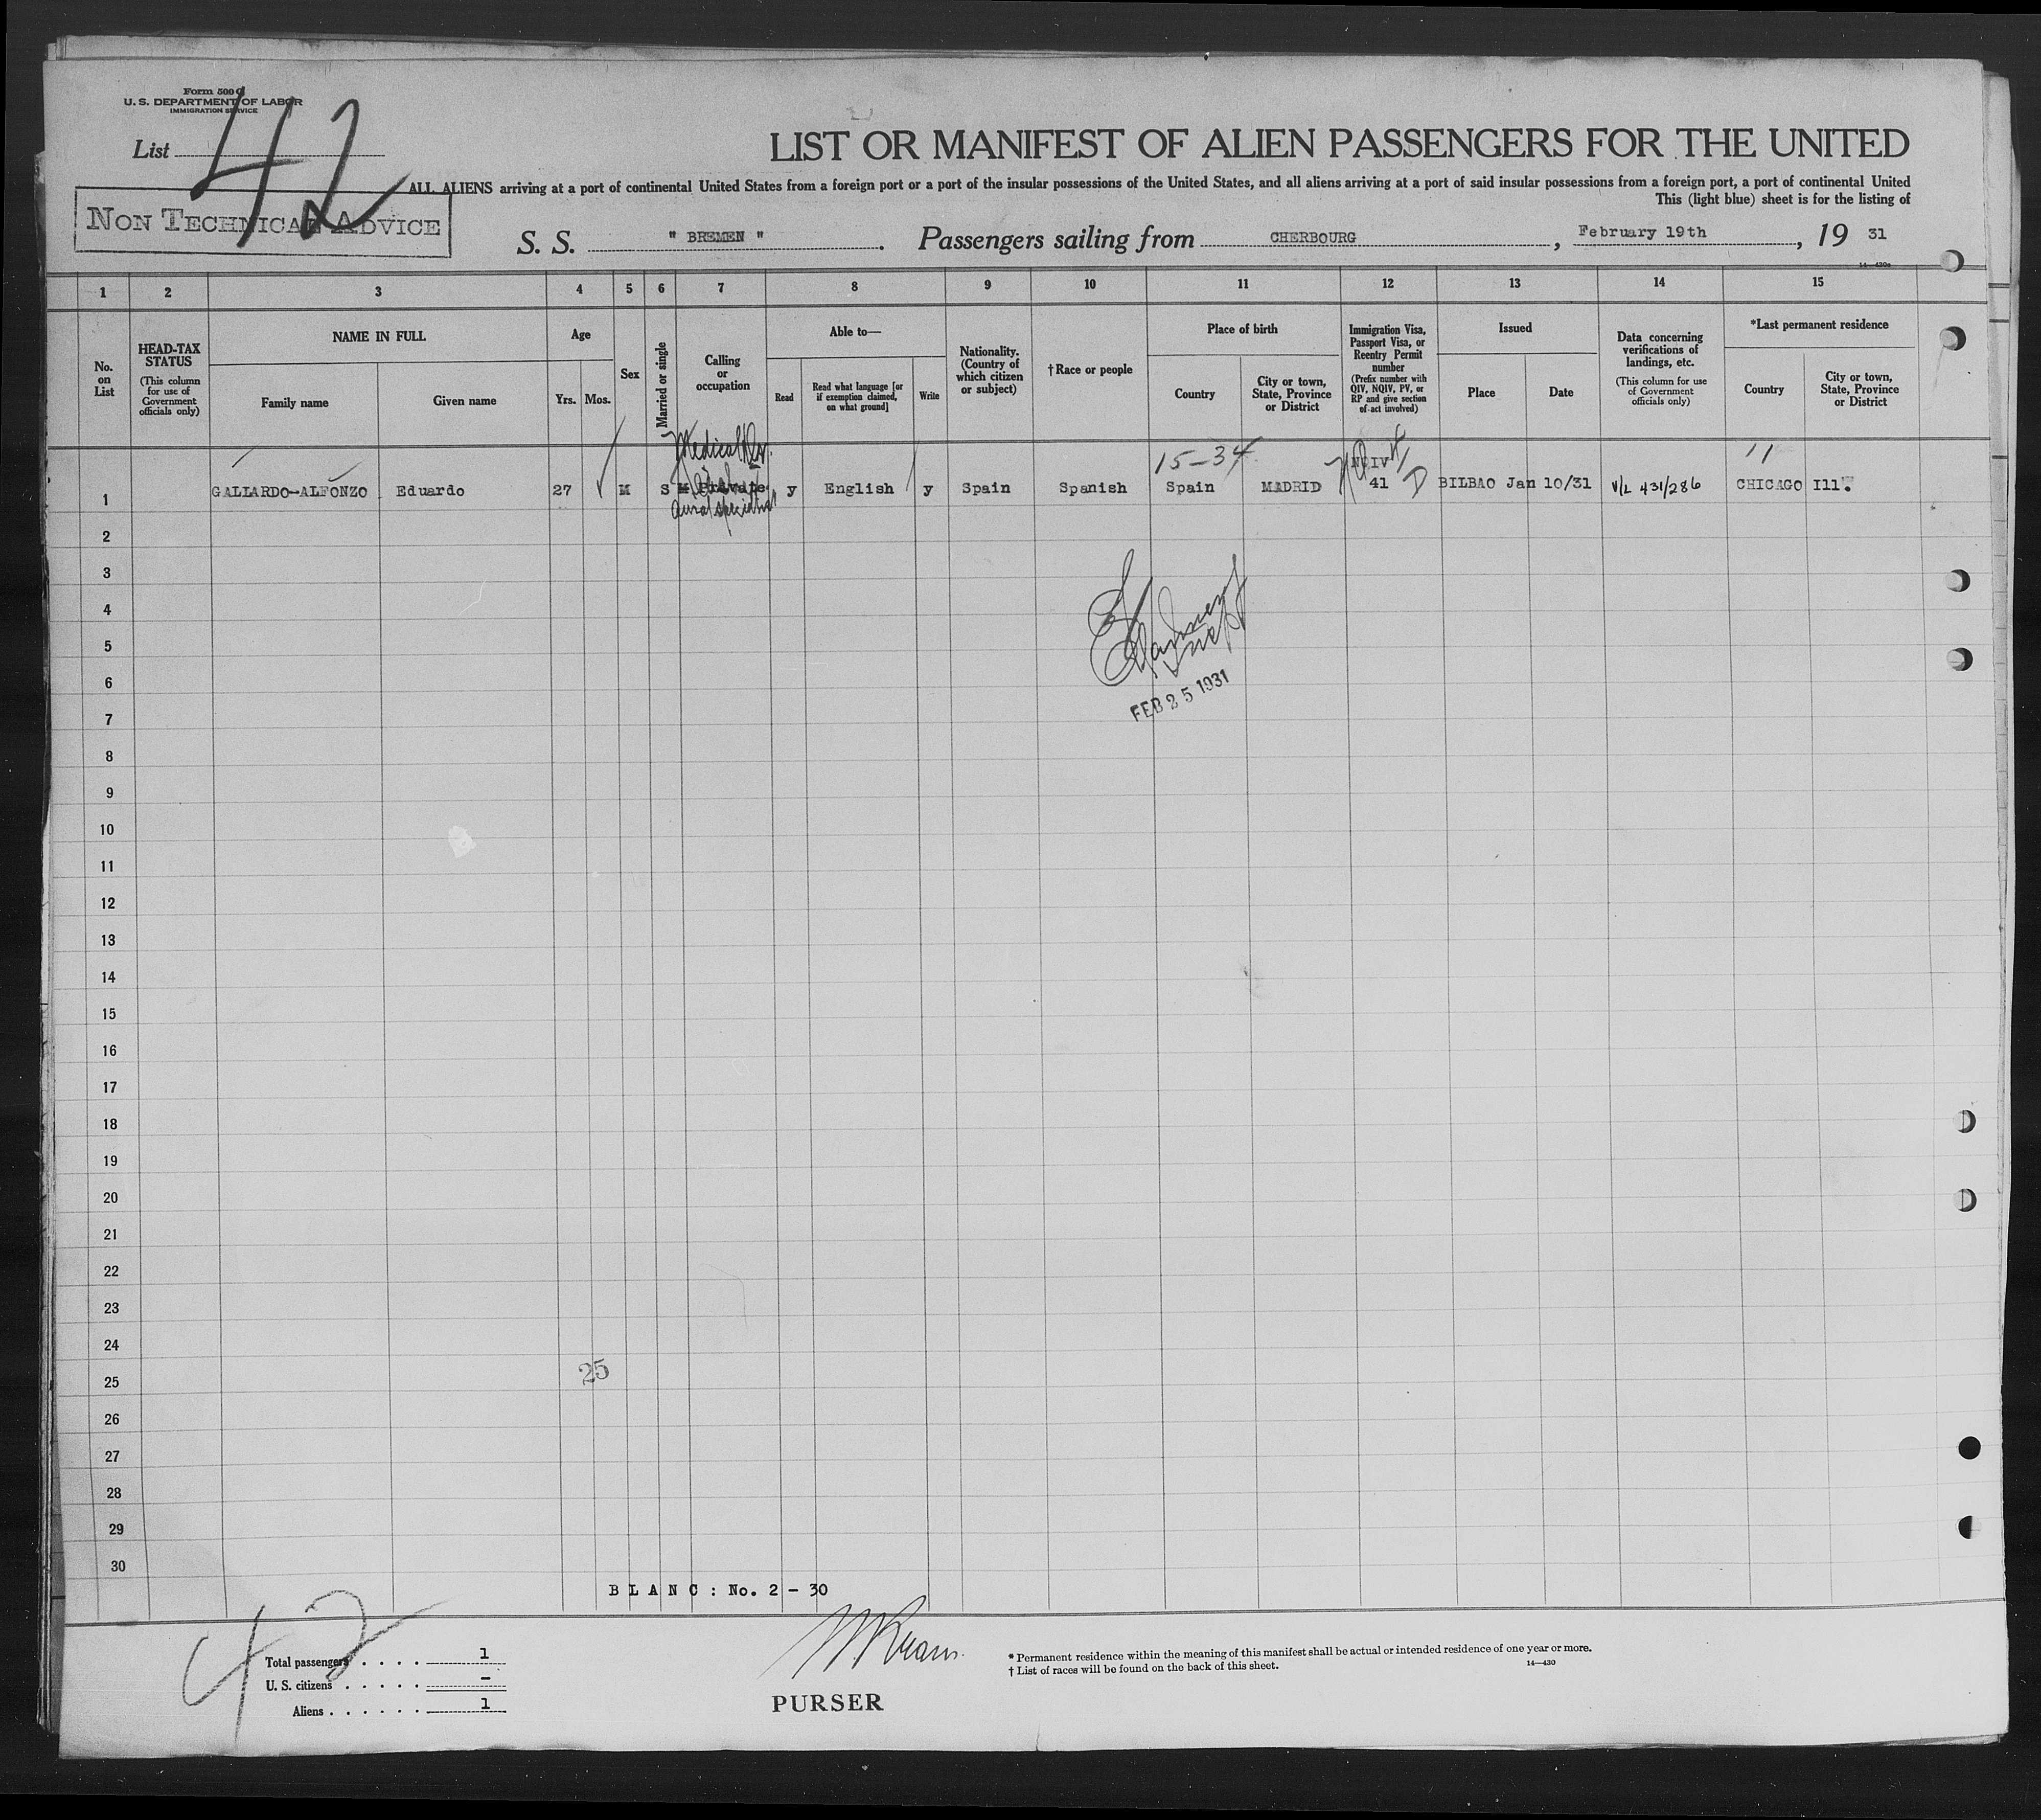 Form 500
U. S. DEPARTMENT OF LABOR
IMMIGRATION SERVICE
List 42
LIST OR MANIFEST OF ALIEN PASSENGERS FOR THE UNITED
ALL ALIENS arriving at a port of continental United States from a foreign port or a port of the insular possessions of the United States, and all aliens arriving at a port of said insular possessions from a foreign port, a port of continental United
This (light blue) sheet is for the listing of
NON TECHNICAL ADVICE
S. S. " BREMEN " . Passengers sailing from CHERBOURG , February 19th , 19 31
14—430a
1 2 3 4 5 6 7 8 9 10 11 12 13 14 15
No. on List
HEAD-TAX STATUS (This column for use of Government officials only)
NAME IN FULL
Family name
Given name
Age
Yrs.
Mos.
Sex
Married or single
Calling or occupation
Able to—
Read
Read what language [or if exemption claimed, on what ground]
Write
Nationality. (Country of which citizen or subject)
†Race or people
Place of birth
Country
City or town, State, Province or District
Immigration Visa, Passport Visa, or Reentry Permit number (Prefix number with QIV, NQIV, PV, or RP and give section of act involved)
Issued
Place
Date
Data concerning verifications of landings, etc. (This column for use of Government officials only)
*Last permanent residence
Country
City or town, State, Province or District
Medical Dr. 15-34 NQIV 11
1 GALLARDO-ALFONZO Eduardo 27 M S Private y English y Spain Spanish Spain MADRID 41 BILBAO Jan 10/31 V/L 431/286 CHICAGO Ill.
Aural specialist
2
3
4
5
6
FEB 25 1931
7
8
9
10
11
12
13
14
15
16
17
18
19
20
21
22
23
24
25
25
26
27
28
29
30
BLANC : No. 2 - 30
42
Total passengers . . . . 1
U. S. citizens . . . . . -
Aliens . . . . . . 1
PURSER
* Permanent residence within the meaning of this manifest shall be actual or intended residence of one year or more.
† List of races will be found on the back of this sheet.
14—430